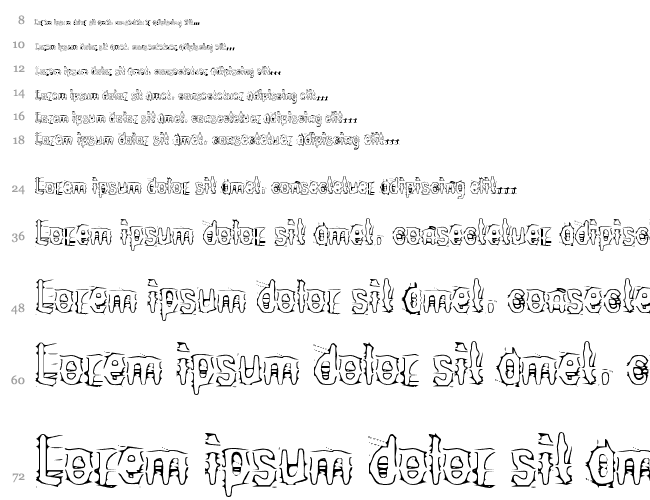 8 Lorem ipsum dolor sit amet, consectetuer adipiscing elit...
10 Lorem ipsum dolor sit amet, consectetuer adipiscing elit...
12 Lorem ipsum dolor sit amet, consectetuer adipiscing elit...
14 Lorem ipsum dolor sit amet, consectetuer adipiscing elit...
16 Lorem ipsum dolor sit amet, consectetuer adipiscing elit...
18 Lorem ipsum dolor sit amet, consectetuer adipiscing elit...
24 Lorem ipsum dolor sit amet, consectetuer adipiscing elit...
36 Lorem ipsum dolor sit amet, consectetuer adipisc
48 Lorem ipsum dolor sit amet, consecte
60 Lorem ipsum dolor sit amet, c
72 Lorem ipsum dolor sit am